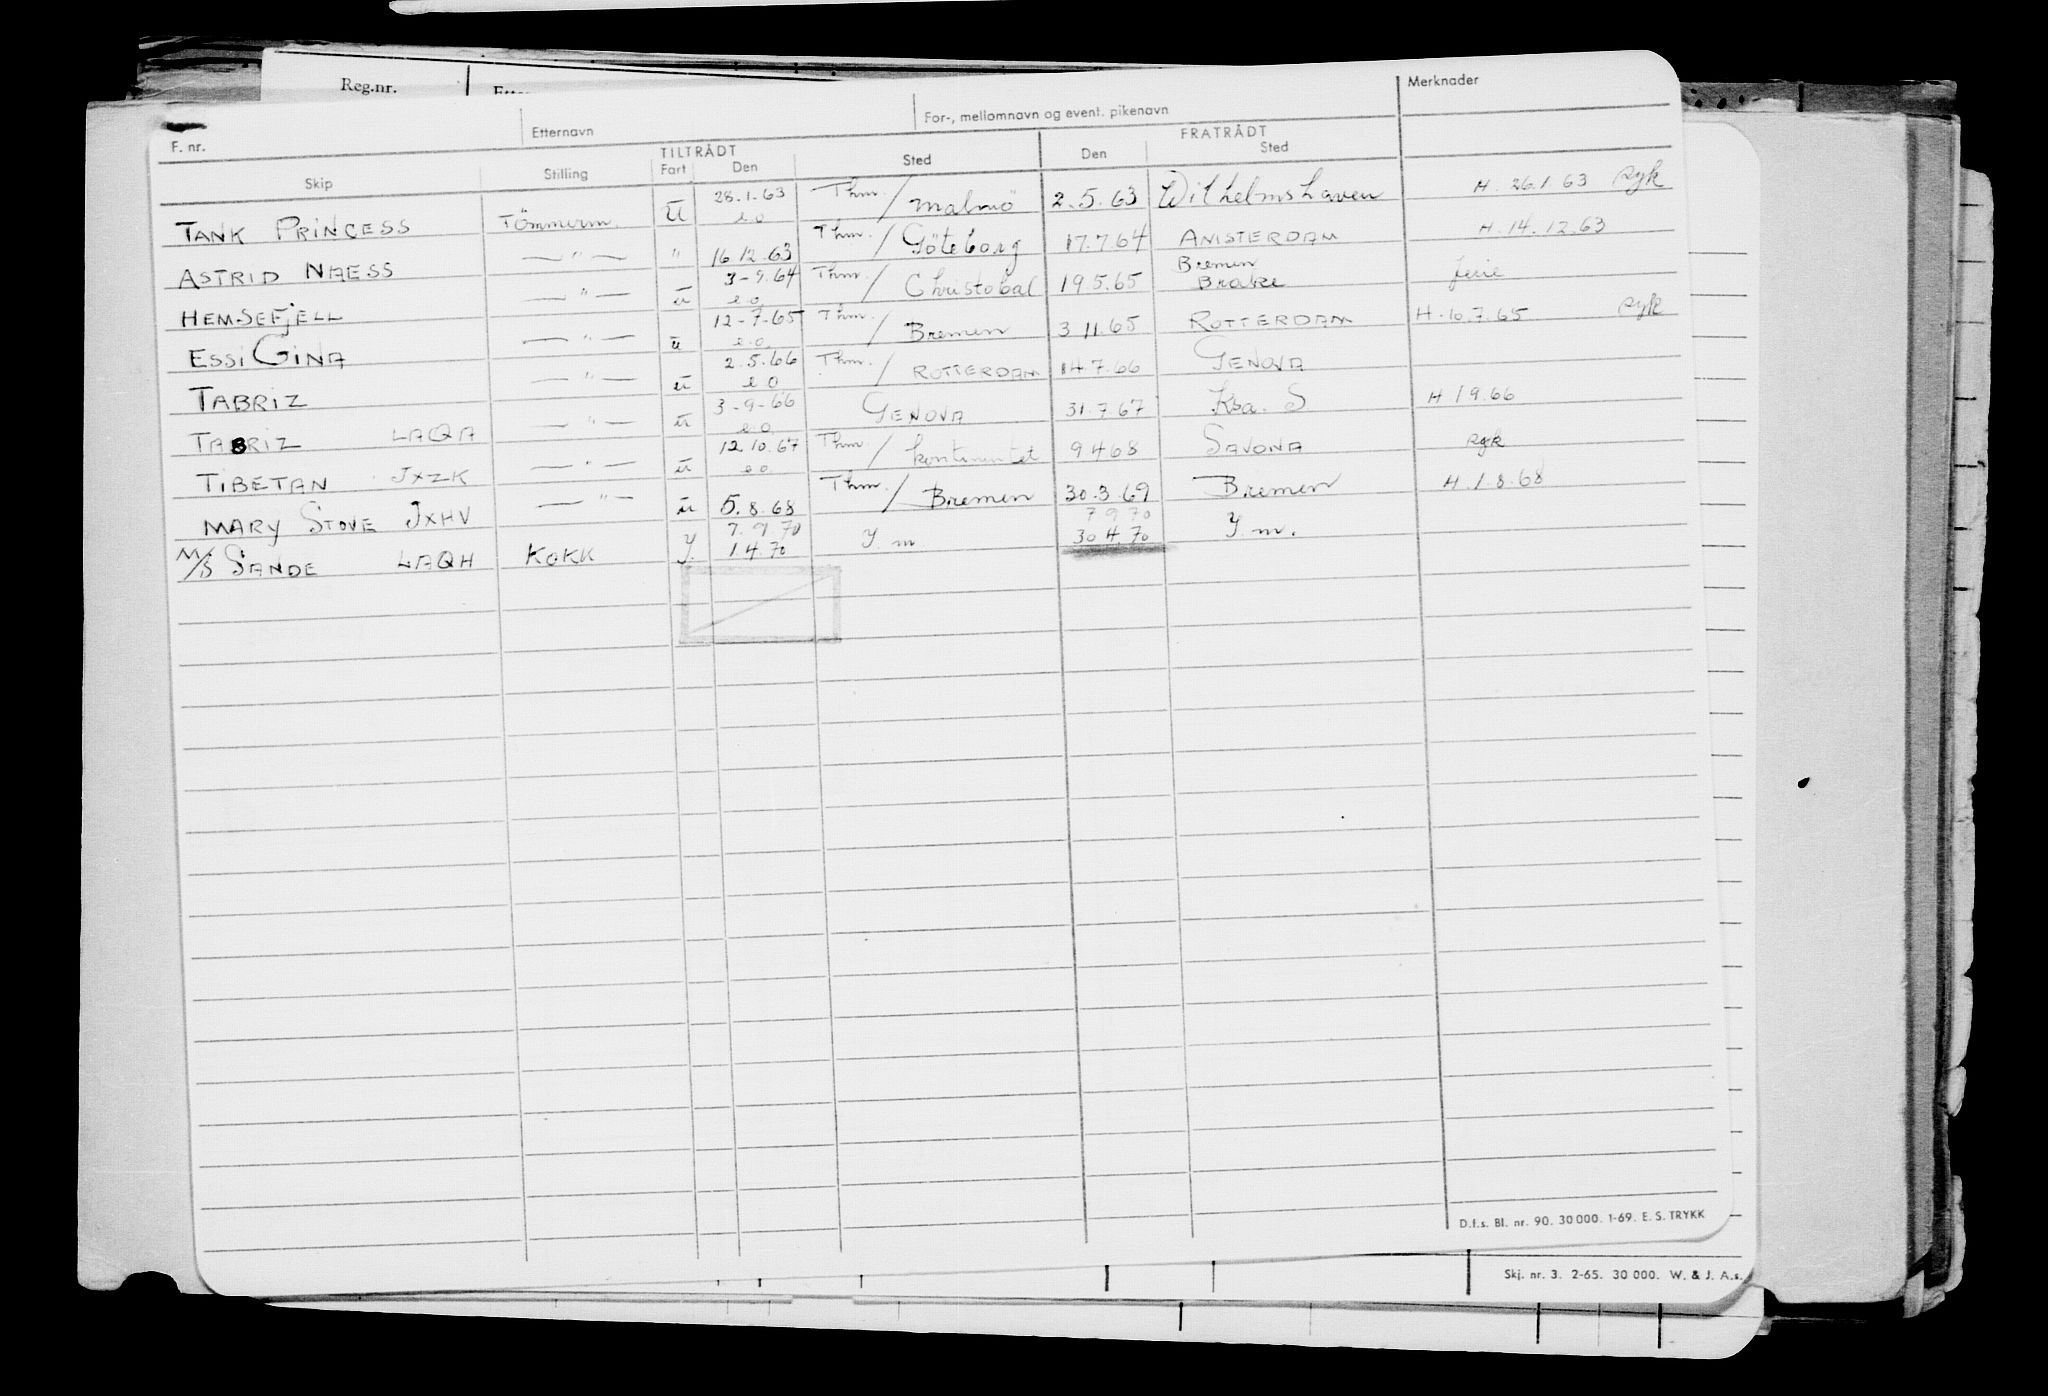 Reg.nr.
F. nr. Etternavn For-, mellomnavn og event. pikenavn Merknader
TILTRÅDT FRATRÅDT
Skip Stilling Fart Den Sted Den Sted
TANK PRINCESS Tömmerm. U 28.1.63 e.o Thm. / Malmö 2.5.63 Wilhelmshaven H. 26.1.63 syk
ASTRID NAESS — " — " 16.12.63 Thm. / Göteborg 17.7.64 AMSTERDAM H. 14.12.63
HEMSEFJELL — " — u 3-9.64 e.o. Thm. / Christobal 19.5.65 Bremen Brake ferie
ESSI GINA — " — u 12-7-65 e.o. Thm. / Bremen 3.11.65 ROTTERDAM H. 10.7.65 syk
TABRIZ — " — u 2.5.66 e.o Thm. / ROTTERDAM 14.7.66 GENOVA
TABRIZ LAQA — " — u 3-9-66 e.o. GENOVA 31.7.67 Kra. S H 1.9.66
TIBETAN JXZK — " — u 12.10.67 e.o. Thm. / kontinentet 9.4.68 SAVONA syk
MARY STOVE JXHV — " — u 5.8.68 Thm. / Bremen 30.3.69 Bremen H. 1.8.68
M/S SANDE LAQH KOKK y. 7.9.70 1.4.70 Y.m 7.9.70 30.4.70 Y.m.
D.f.s. Bl. nr. 90. 30 000. 1-69. E. S. TRYKK
Skj. nr. 3. 2-65. 30 000. W. & J. A.s.